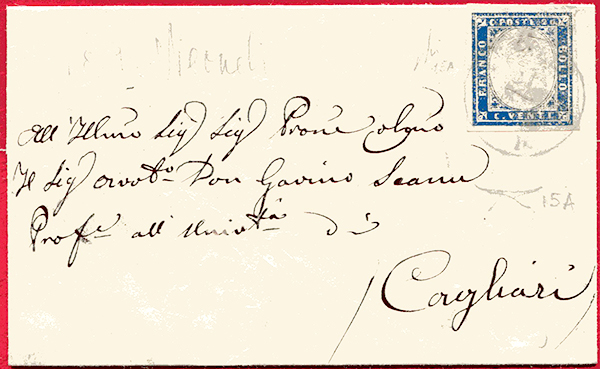 C. POSTE 20
FRANCO
BOLLO
C. VENTI
15A
All' Illmo Sig Sig Prone
Il Sig Avvto Don Gavino Scanu
Profe all' Univtà di
15A
Cagliari